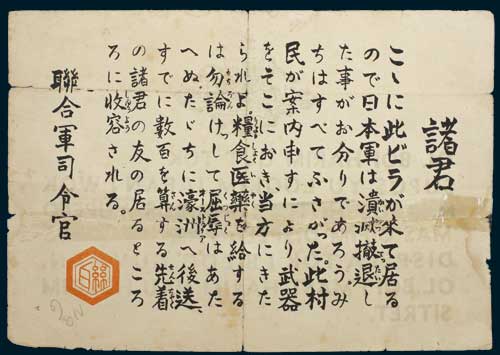 諸君
こゝに此ビラが来て居る
ので日本軍は潰滅撤退し
た事がお分りであろう。み
ちはすべてふさがつた。此村
民が案内申すにより、武器
をそこにおき、当方にきた
られよ。糧食医薬を給する
は勿論けして屈辱はあた
へぬ。たゞちに濠洲へ後送、
すでに数百を算する先着
の諸君の友の居るとこ
ろに收容される。
聯合軍司令官